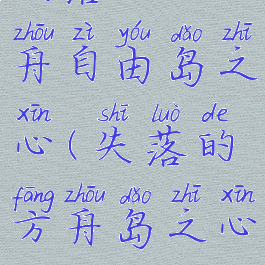 zhōu zì yóu dǎo zhī
舟自由岛之
xīn shī luò de
心(失落的
fāng zhōu dǎo zhī xīn
方舟岛之心